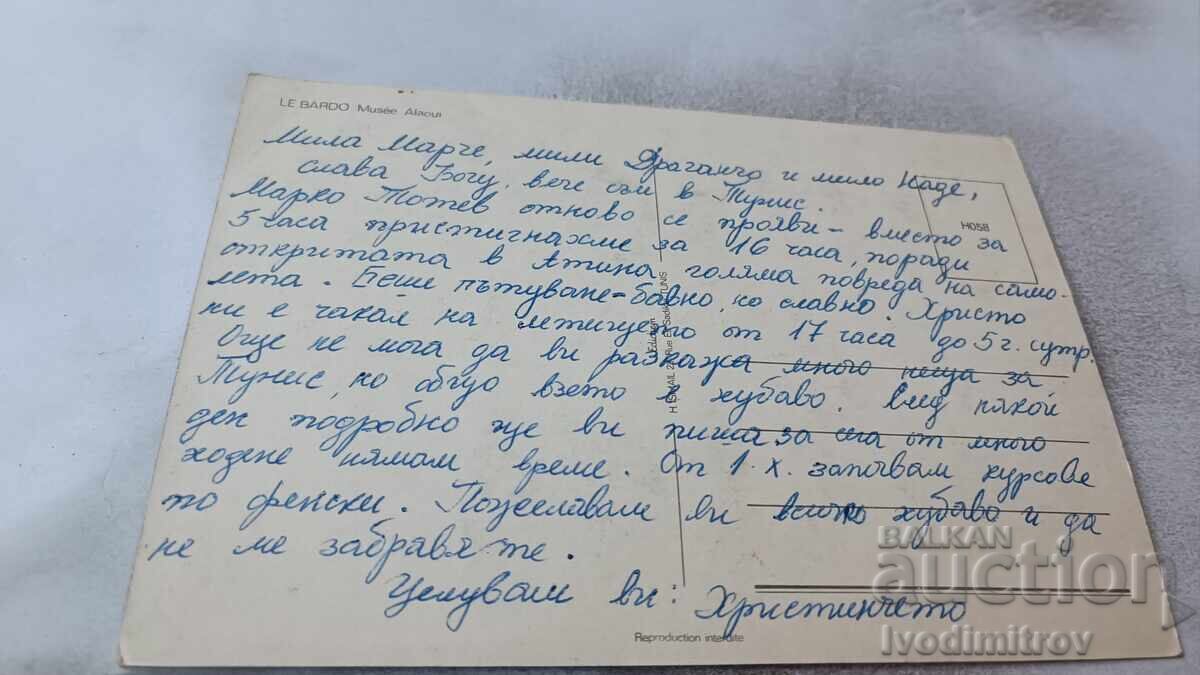 LE BARDO Musée Alaoui
Мила Марче, мили Драганчо и мило Наде,
слава Богу, вече съм в Тунис.
Марко Тотев отново се прояви – вместо за
5 часа пристигнахме за 16 часа, поради
откритата в Атина голяма повреда на само-
лета. Беше пътуване – бавно, но славно. Христо
ни е чакал на летището от 17 часа до 5 ч. сутр.
Още не мога да ви разкажа много неща за
Тунис, но общо взето е хубаво. След някой
ден подробно ще ви пиша за сега от много
ходене нямам време. От 1.X. започвам курсове
по френски. Пожелавам ви всичко хубаво и да
не ме забравяте.
Целувам ви: Христинчето
H058
Edition
H. ISMAIL 2 Rue Es Sadikia TUNIS
Reproduction interdite
BALKAN
auction
Ivodimitrov